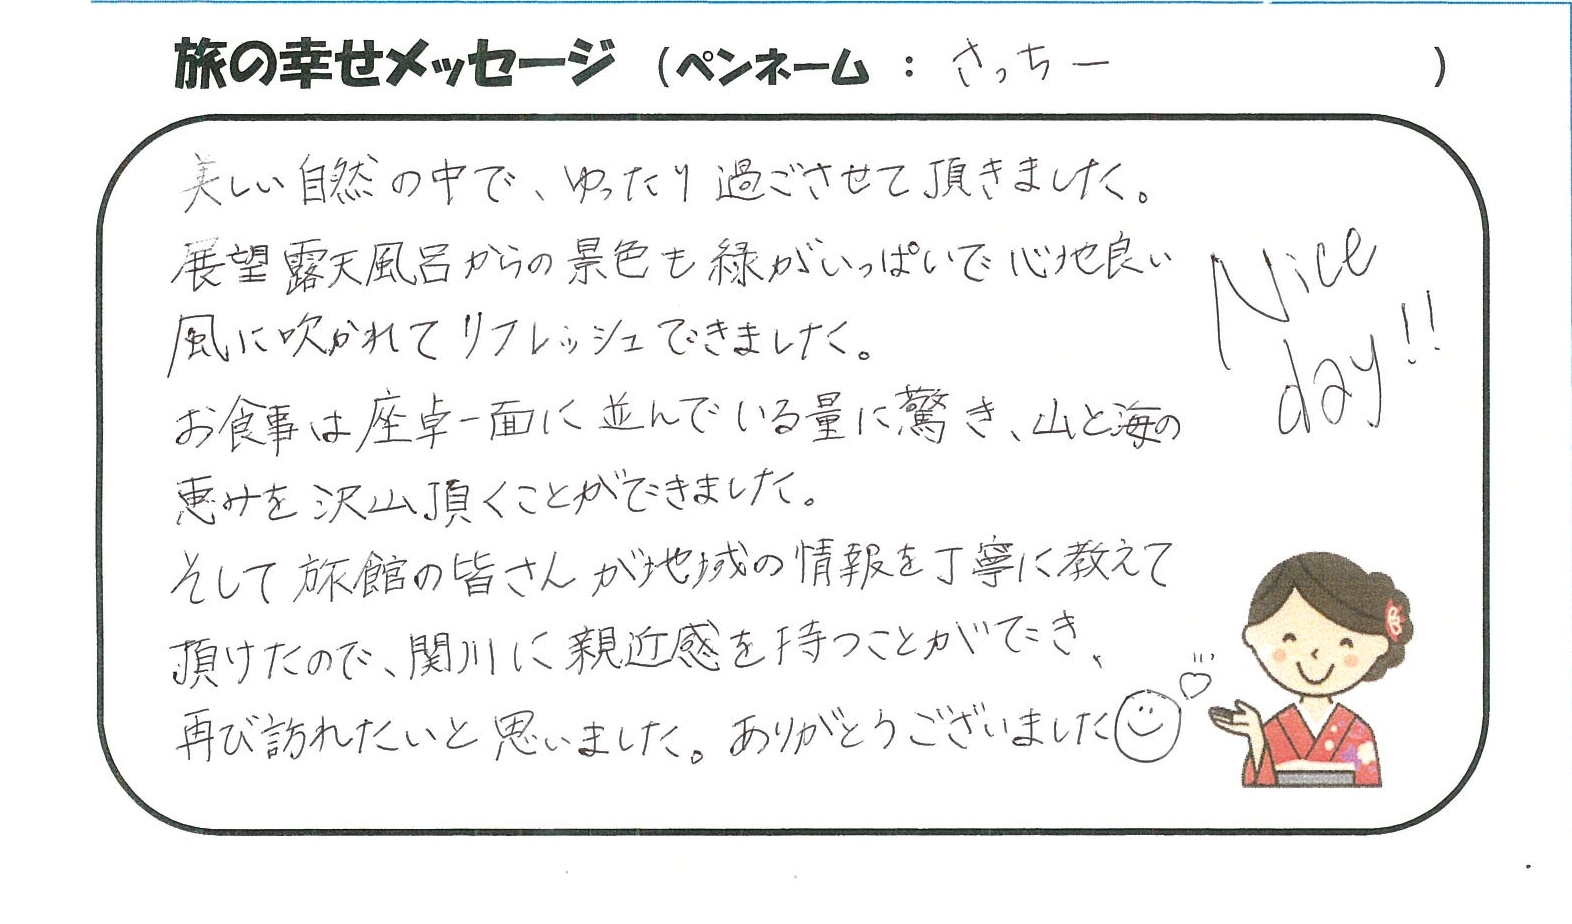 旅の幸せメッセージ（ペンネーム：さっちー）
美しい自然の中で、ゆったり過ごさせて頂きました。
展望露天風呂からの景色も緑がいっぱいで心地良い
風に吹かれてリフレッシュできました。
お食事は座卓一面に並んでいる量に驚き、山と海の
恵みを沢山頂くことができました。
そして旅館の皆さんが地域の情報を丁寧に教えて
頂けたので、関川に親近感を持つことができ、
再び訪れたいと思いました。ありがとうございました
Nice
day!!